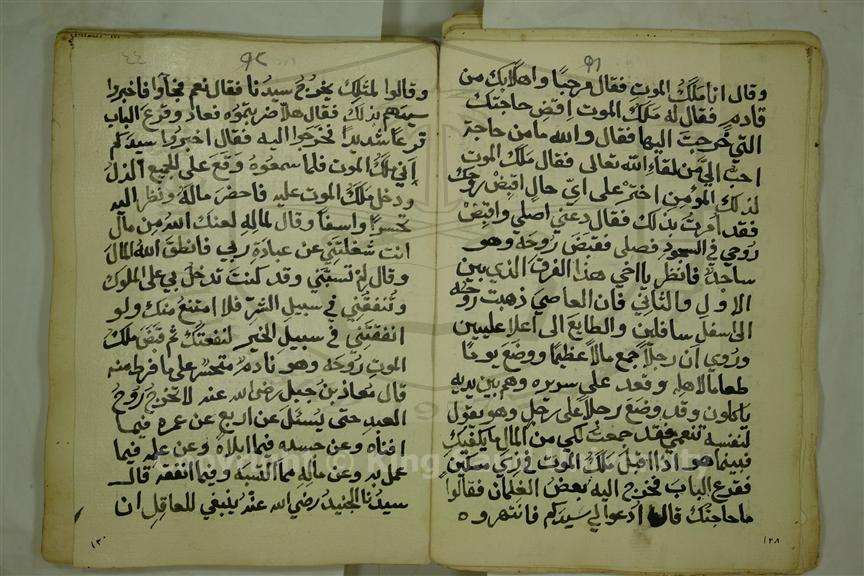 ٩١
وقال انا مَلَكُ الموت فقال مرحبًا واهلًا بك من
قادمٍ فقال له مَلَكُ الموت اقضِ حاجتك
التي خرجتَ اليها فقال والله ما من حاجة
احبّ اليّ من لقاء الله تعالى فقال ملك الموت
لذلك المؤمن اختر على ايّ حالٍ اقبضْ روحك
فقد امرت بذلك فقال دعني اصلي واقبِضْ
روحي في السجود فصلى فقبَضَ روحَهُ وهو
ساجدٌ فانظر يا اخي هذا الفرق الذي بين
الاول والثاني فان العاصي ذهبت روحه
الى اسفل سافلين والطايع الى اعلا عليين
ورُوي ان رجلاً جمع مالاً عظيمًا ووضعَ يومًا
طعامًا لاهله وقعد على سريره وهم بين يديه
ياكلون وقد وضعَ رِجلاً على رِجلٍ وهو يقول
لنفسه تنعمي فقد جمعتُ لكي من المال ما يكفيك
فبينما هو اذا اقبل ملكُ الموت في زيّ مسكينٍ
فقرع الباب فخرج اليه بعض الغلمان فقالوا
ما حاجتك قال ادعوا لي سيدكم فانتهروه
١٢٨
٩٢
٤٤
وقالوا لمثلك يخرج سيدُنا فقال نعم فجآوا فاخبروا
سيدهم بذلك فقال هلّا ضربتموه فعاد وقرع الباب
قرعًا شديدًا فخرجوا اليه فقال اخبروا سيدكم
اني ملكُ الموت فلما سمعوه وقعَ على الجميع الذلّ
ودخل ملكُ الموت عليه فاحضرَ مالَهُ ونظر اليه
تحسرًا واسفًا وقال لمالِهِ لعنك اللهُ من مالٍ
انت شغلتني عن عبادة ربي فانطقَ اللهُ المالَ
وقال لِمَ تسبّني وقد كنتَ تدخلُ بي على الملوك
وتُنفقُني في سبيل الشرّ فلا امتنعُ منك ولو
انفقتني في سبيل الخير لنفعتكَ ثم قبَضَ ملك
الموت روحَهُ وهو نادمٌ متحسّرٌ على ما فرط منه
قال معاذ بن جبل رضي الله عنه لا تخرج روحُ
العبد حتى يُسئل عن اربعٍ عن عمره فيما
افناه وعن جسده فيما ابلاهُ وعن علمه فيما
عمل به وعن مالِهِ مما اكتسبَه وفيما انفقه قال
سيدُنا الجنيدُ رضي الله عنهُ ينبغي للعاقِل ان
١٣٠